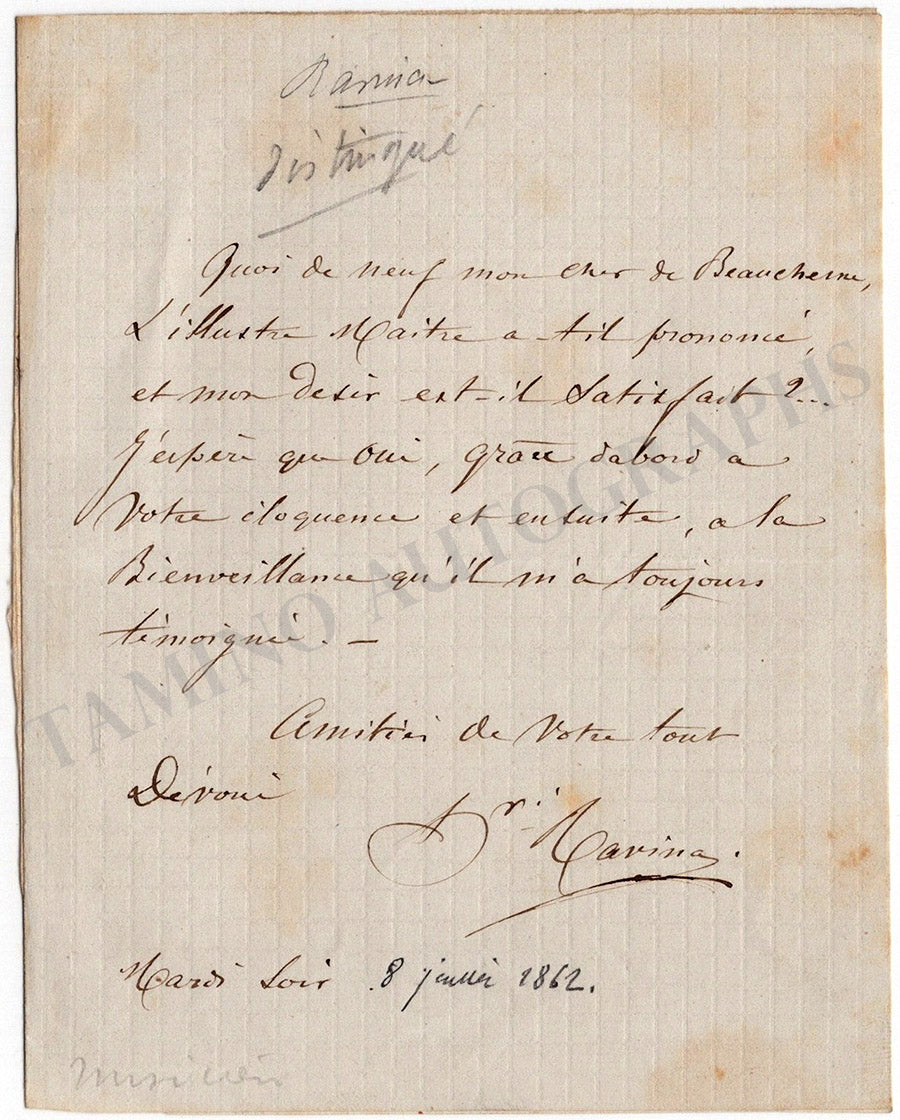 Ravina
distingué
Quoi de neuf mon cher de Beauchesne,
L'illustre Maitre a-t-il prononcé,
et mon desir est-il Satisfait ?...
J'espère que oui, grace dabord a
Votre éloquence et ensuite, a la
Bienveillance qu'il m'a toujours
témoignée. —
Amitiés de Votre tout
Dévoué
hri Ravina.
Mardi Soir 8 janvier 1862.
musicien
TAMINO AUTOGRAPHS